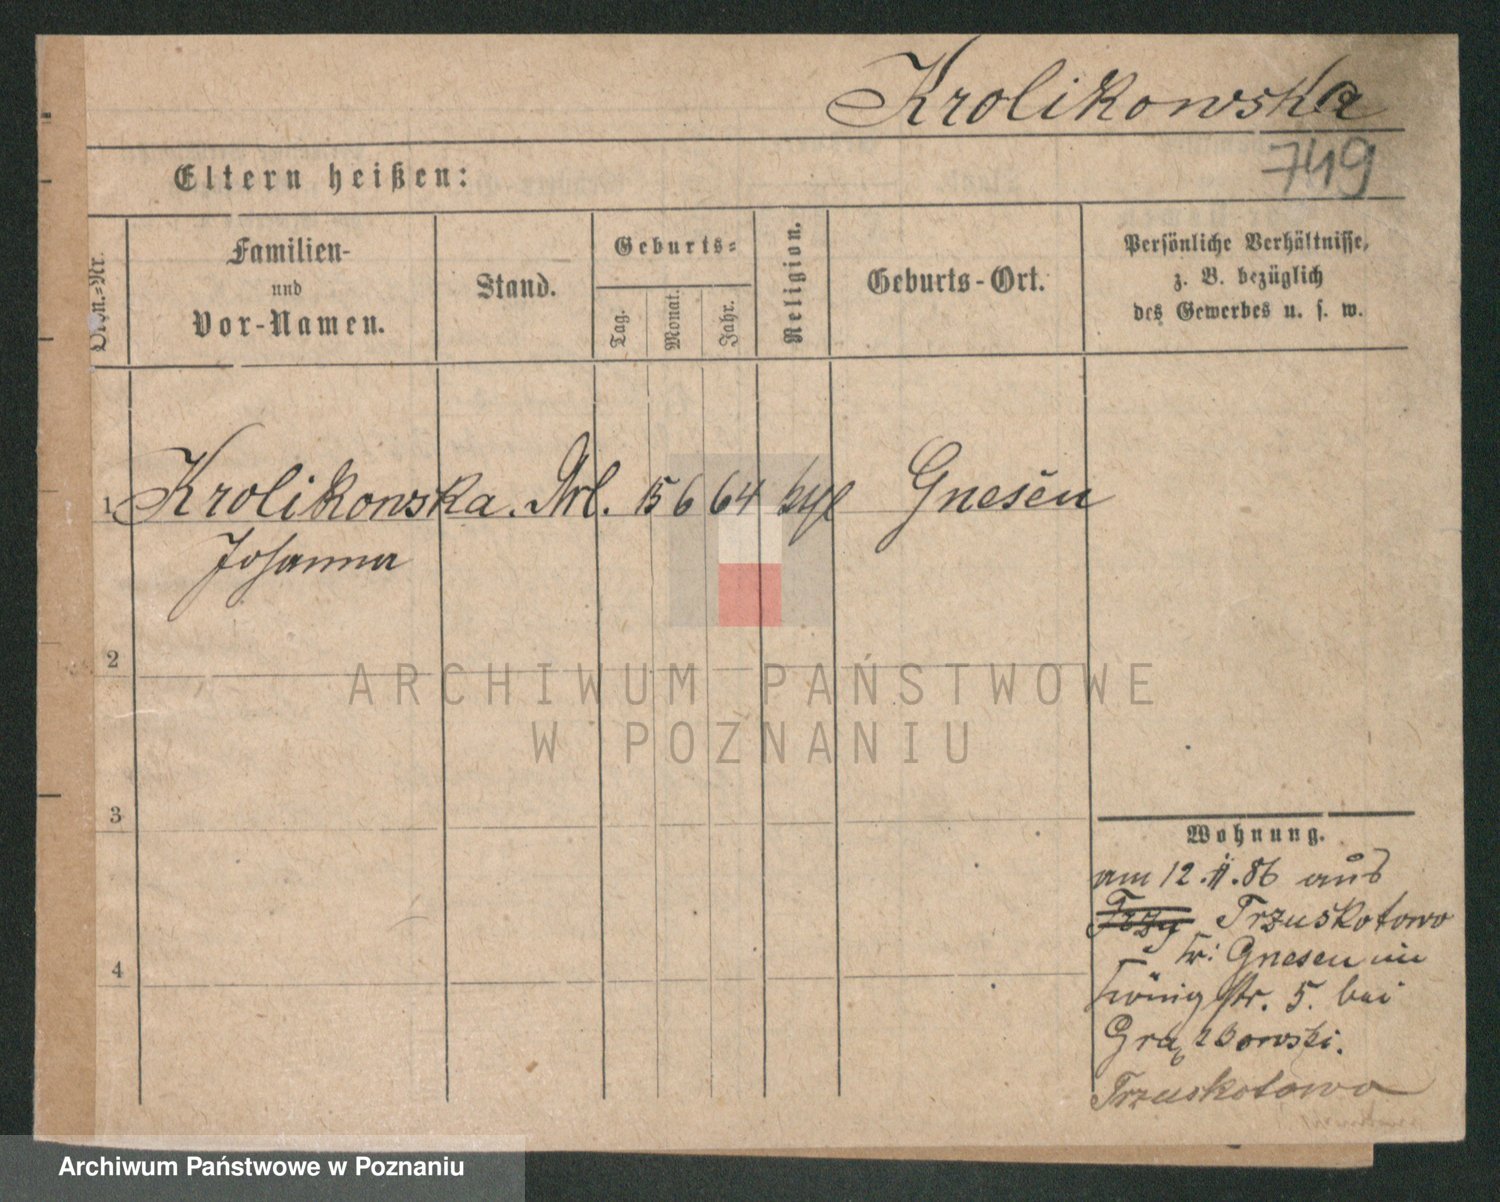 Krolikowska
749
Eltern heißen:
Ordn.-Nr.
Familien-
und
Vor-Namen.
Stand.
Geburts-
Tag.
Monat.
Jahr.
Religion.
Geburts-Ort.
Persönliche Verhältnisse,
z. B. bezüglich
des Gewerbes u. s. w.
1 Krolikowska. 15 6 64 Gnesen
Johanna
2
3
4
Wohnung.
am 12. 86 aus
Trzuskotowo
Kr: Gnesen in
König str. 5. bei
Grabowski.
Trzuskotowo
ARCHIWUM PAŃSTWOWE
W POZNANIU
Archiwum Państwowe w Poznaniu